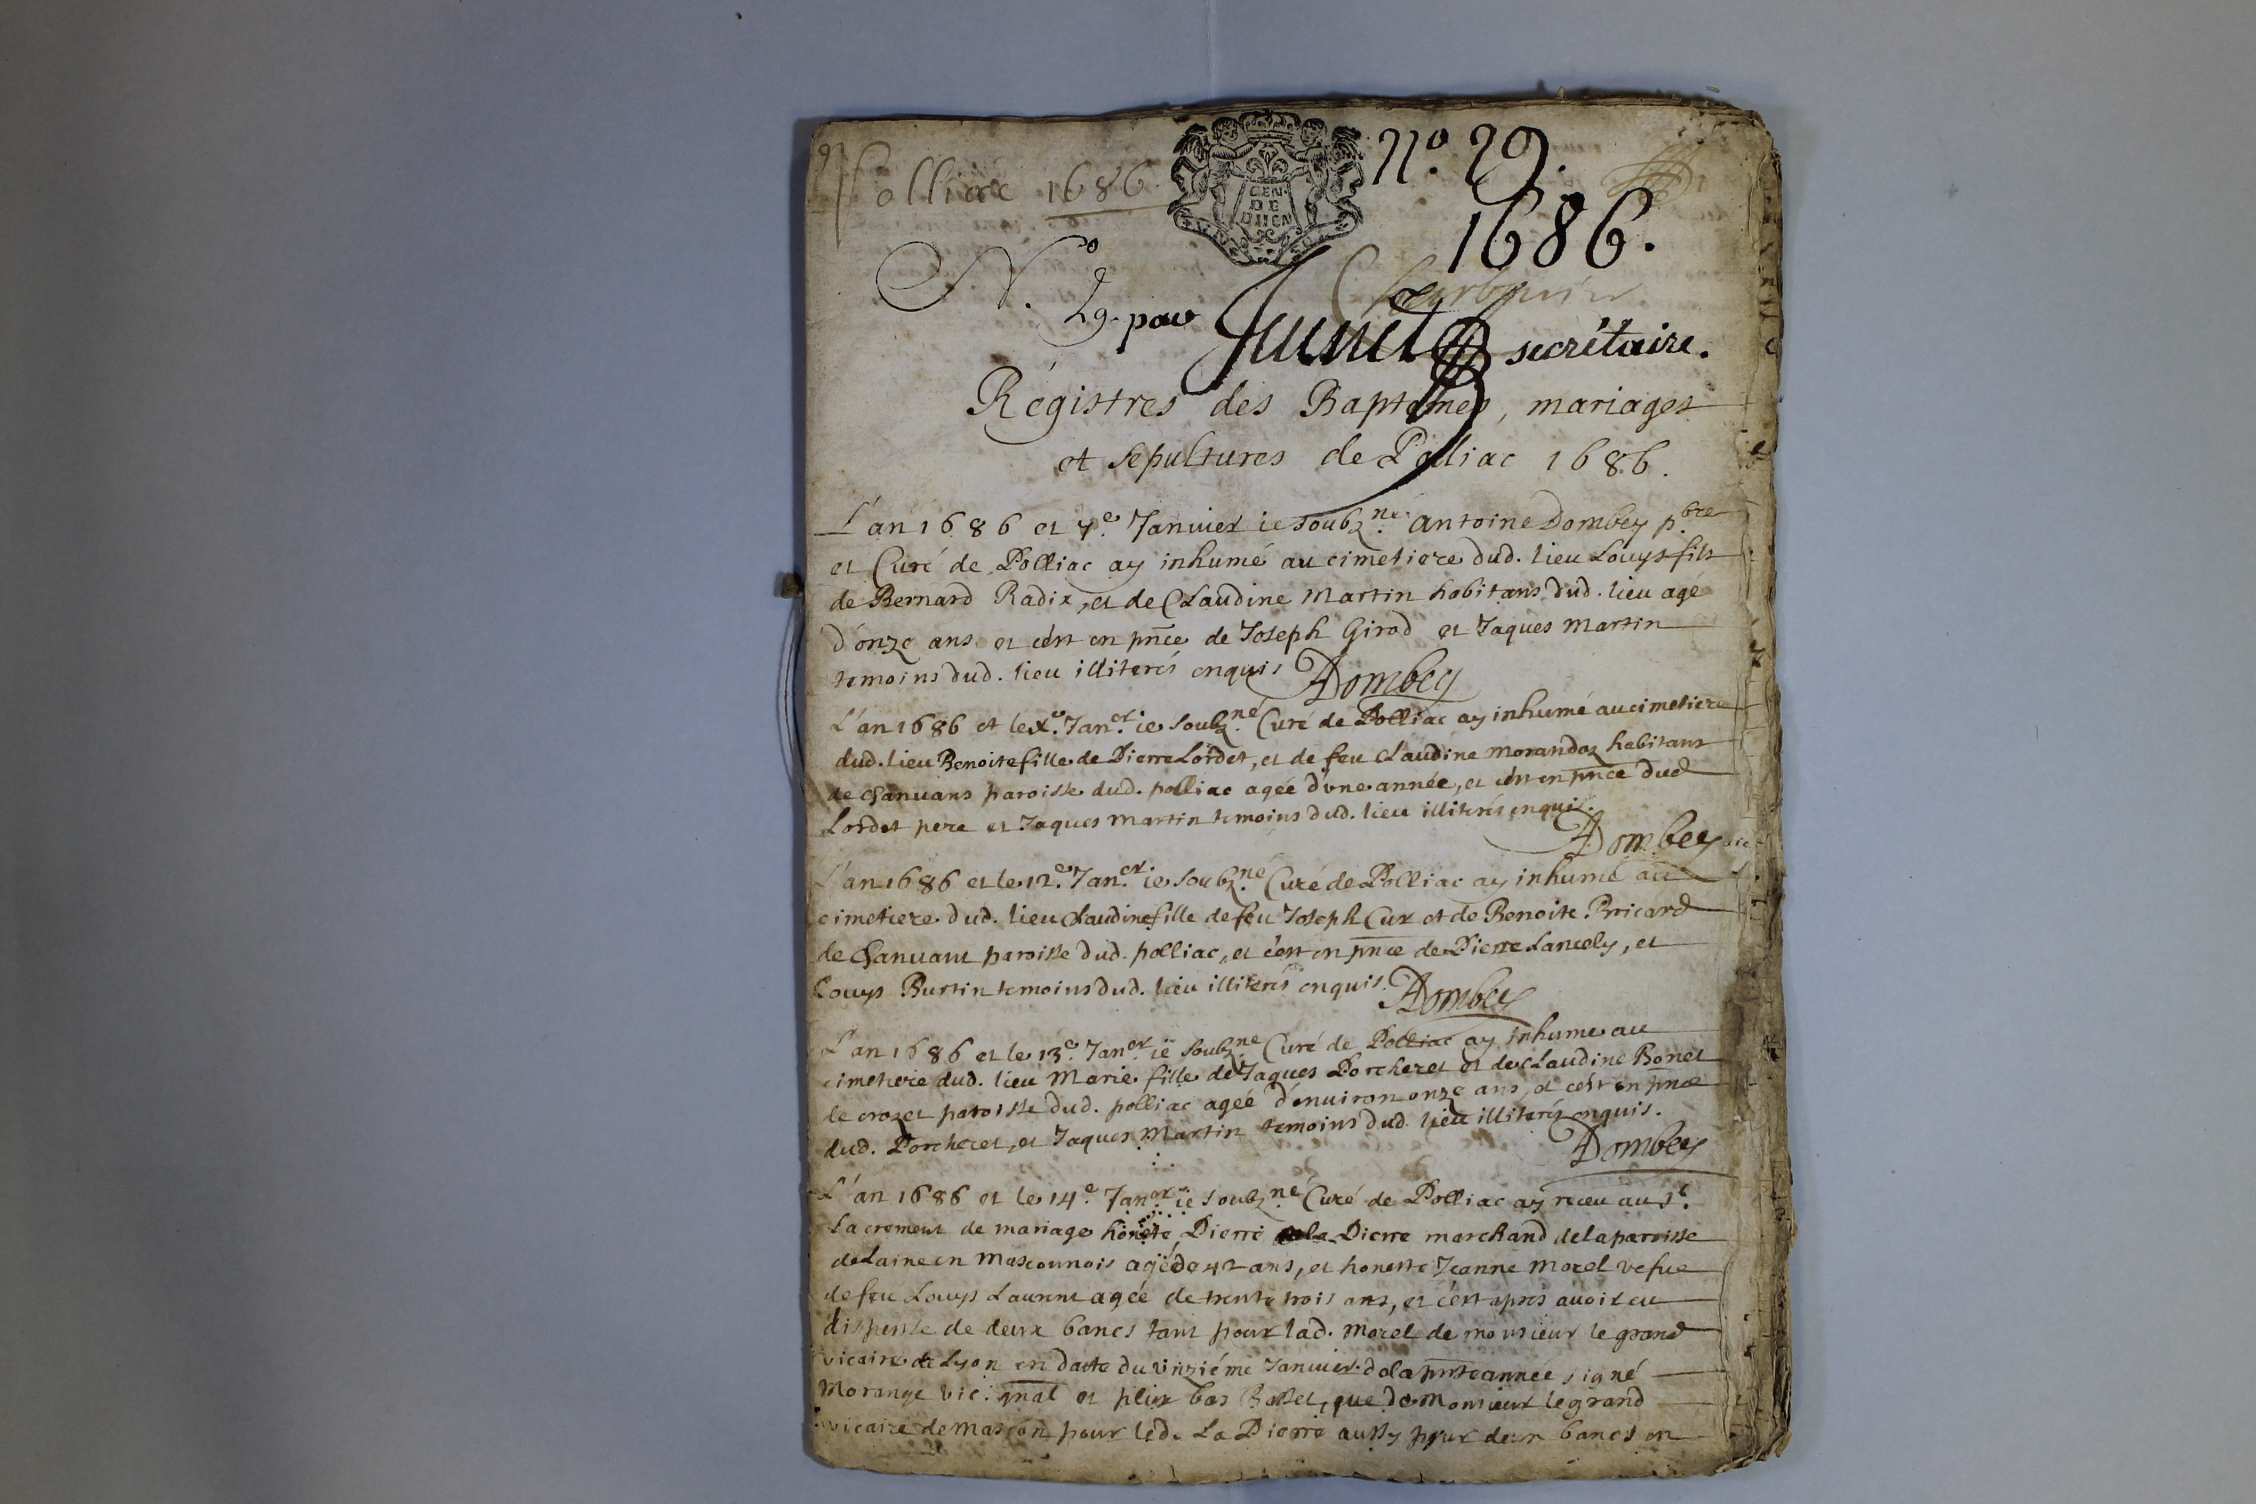 Polliac 1686
GEN.
DE
DIION
N.º 29.
1686.
N.º 29. par
secrétaire.
Régistres des Baptemes, mariages
et sepultures de Polliac 1686.
L'an 1686 et 7.e Janvier ie soubz.né Antoine Dombey p.bre
et Curé de Polliac ay inhumé au cimetiere dud. lieu Louys fils
de Bernard Radix, et de Claudine Martin habitans dud. lieu agé
d'onze ans et c'est en pñce de Joseph Girod et Jaques Martin
temoins dud. lieu illiterés enquis Dombey
L'an 1686 et le x.e Jan.er ie soubz.né Curé de Polliac ay inhumé au cimetiere
dud. lieu Benoite fille de Pierre Lordet, et de feu Claudine Morandaz habitans
de Chanuans paroisse dud. polliac agée d'vne année, et c'est en pñce dud
Lordet pere et Jaques Martin temoins dud. lieu illiterés enquis.
Dombey
L'an 1686 et le 12.e Jan.er ie soubz.né Curé de Polliac ay inhumé au
cimetiere dud. lieu Claudine fille de feu Joseph Cux et de Benoite Pricard
de Chanuant paroisse dud. polliac, et c'est en pñce de Pierre Lancely, et
Louys Burtin temoins dud. lieu illiterés enquis. Dombey
L'an 1686 et le 13.e Jan.er ie soubz.né Curé de Polliac ay inhume au
cimetiere dud. lieu Marie fille de Jaques Porcheret et de Claudine Bonet
de crozet paroisse dud. polliac agée d'enuiron onze ans, et c'est en pñce
dud. Porcheret, et Jaques Martin temoins dud. lieu illiterés enquis.
Dombey
L'an 1686 et le 14.e Jan.er ie soubz.né Curé de Polliac ay receu au S.t
Sacrement de mariage honete Pierre la Pierre marchand de la paroisse
de Laine en Masconnois agé de 42 ans, et honeste Jeanne Morel vefue
de feu Louys Laurent agée de trente trois ans, et c'est apres auoir eu
dispense de deux bancs tant pour lad. Morel de monsieur le grand
vicaire de Lyon en datte du vnziéme Januier de la pñte année signé
Morange vic. gnãl et plus bas Basset, que de Monsieur le grand
vicaire de Mascon pour led. La Pierre aussy pour deux bancs en